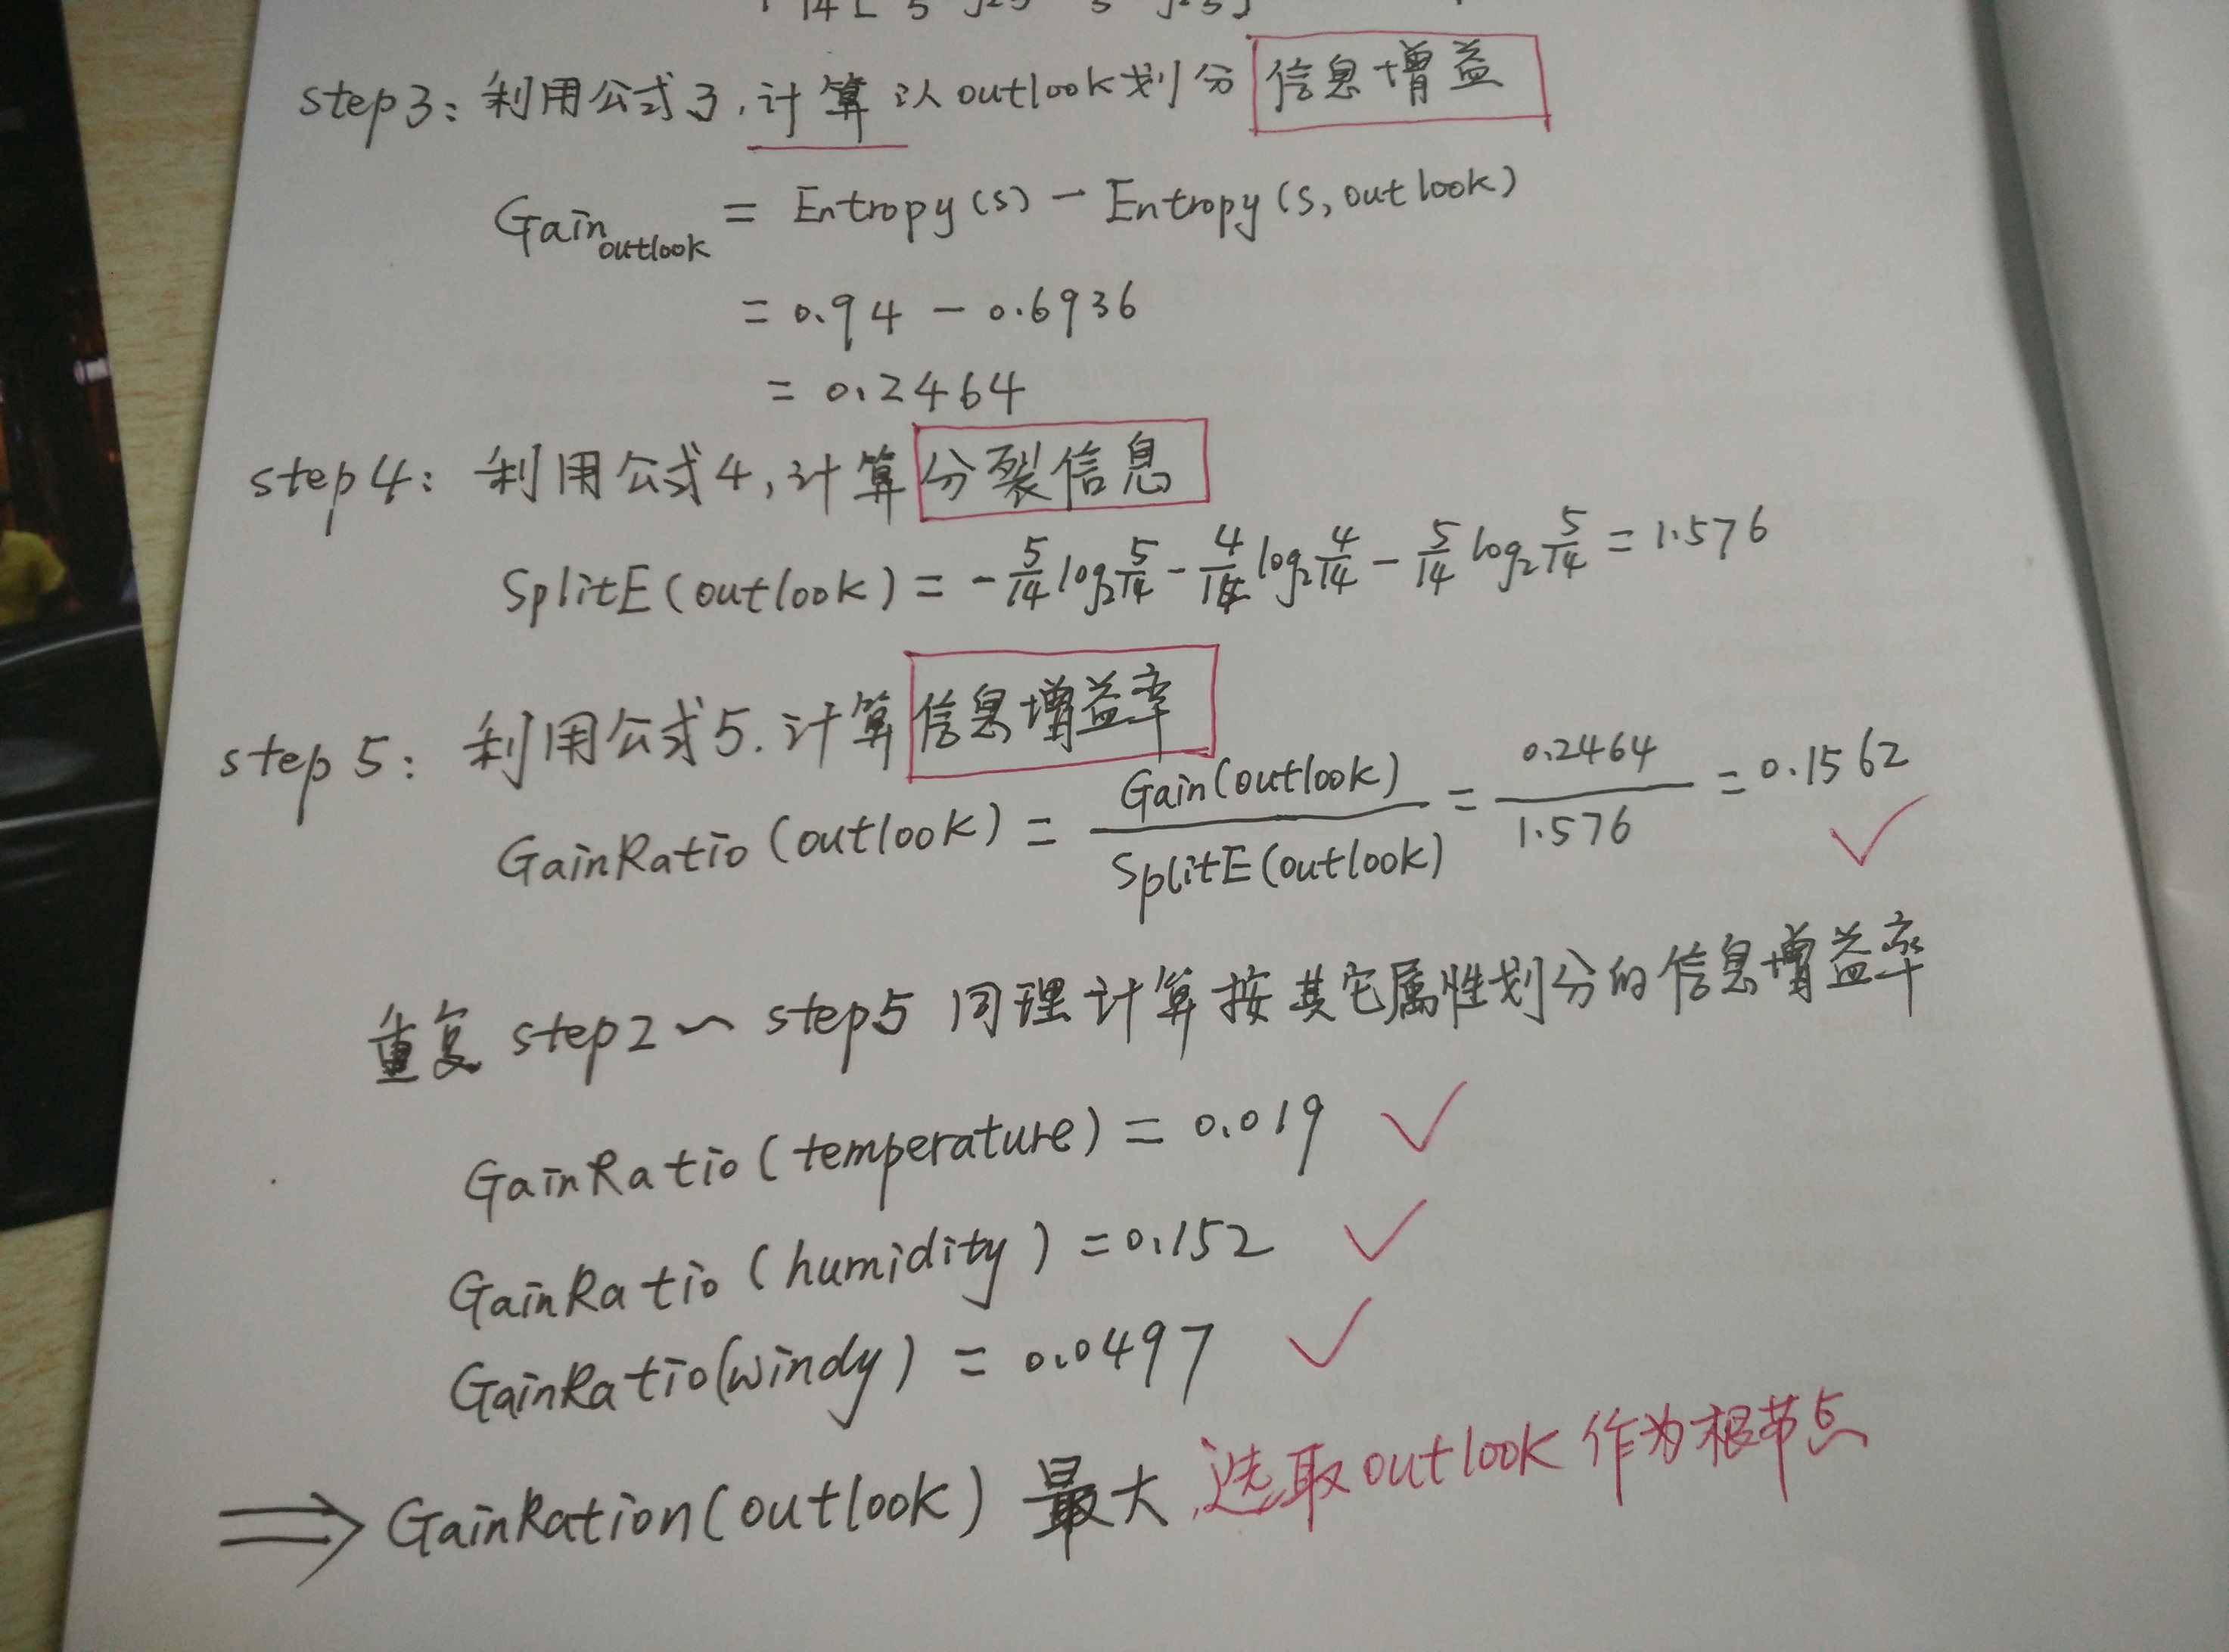 step3: 利用公式3,计算以outlook划分信息增益
Gain outlook = Entropy(s) - Entropy(s,outlook)
= 0.94 - 0.6936
= 0.2464
step4: 利用公式4,计算分裂信息
SplitE(outlook) = - 5/14 log₂ 5/14 - 4/14 log₂ 4/14 - 5/14 log₂ 5/14 = 1.576
step5: 利用公式5.计算信息增益率
GainRatio(outlook) = Gain(outlook) / SplitE(outlook) = 0.2464 / 1.576 = 0.1562 ✓
重复 step2～step5 同理计算按其它属性划分的信息增益率
GainRatio(temperature) = 0.019 ✓
GainRatio(humidity) = 0.152 ✓
GainRatio(windy) = 0.0497 ✓
⇒ GainRation(outlook) 最大,选取outlook作为根节点